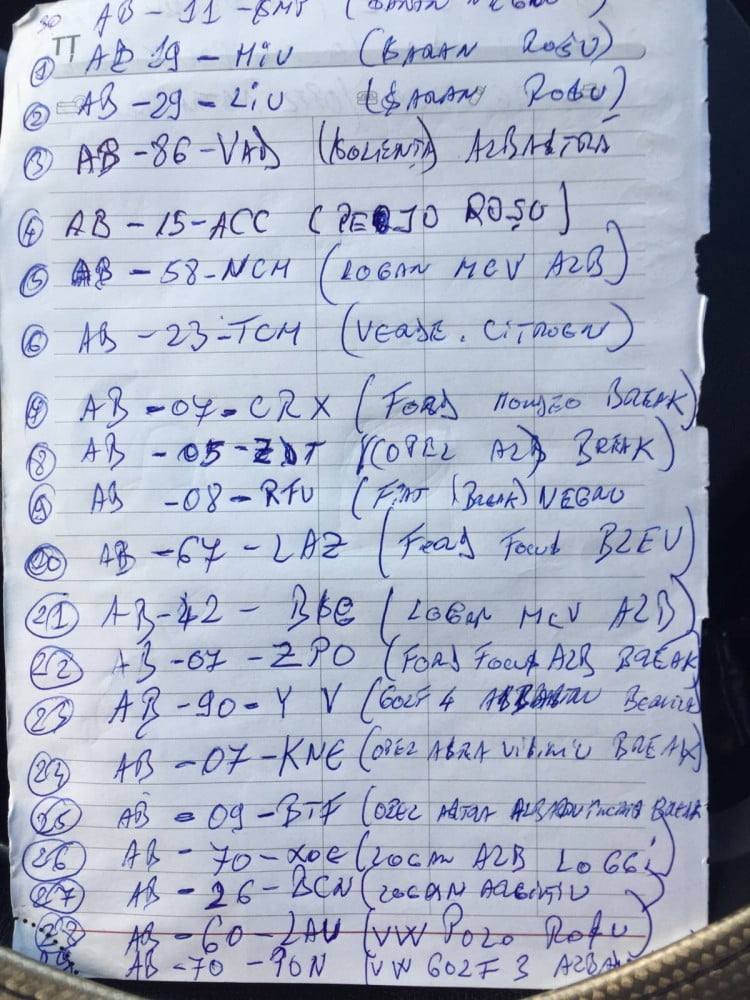 30 AB - 11 - BMT (
TT
1 AB 19 - MIU (SARAN ROȘU)
2 AB - 29 - LIU (SARAN ROSU)
3 AB - 86 - VAD ALBASTRĂ
4 AB - 15 - ACC (PEJO ROȘU)
5 AB - 58 - NCM (LOGAN MCV ALB)
6 AB - 23 - TCM (VERDE. CITROEN)
AB - 07 - CRX (FORD MONDEO BREAK)
8 AB - 05 - ZDT (OPEL ALB BREAK)
AB - 08 - RFU (FIAT (BREAK) NEGRU
20 AB - 67 - LAZ (FORD FOCUS BLEU)
21 AB - 42 - (LOGAN MCV ALB)
22 AB - 67 - ZPO (FORD FOCUS ALB BREAK
23 AB - 90 - Y V (GOLF 4
24 AB - 07 - KNE (OPEL BREAK)
25 AB - 09 - BTF (OPEL ASTRA BREAK
26 AB - 70 - XOE (LOGAN ALB LOGGI)
27 AB - 26 - BCN (LOGAN ARGINTIU)
28 AB - 60 - LAU (VW POLO ROSU)
AB - 70 - PON (VW GOLF 3